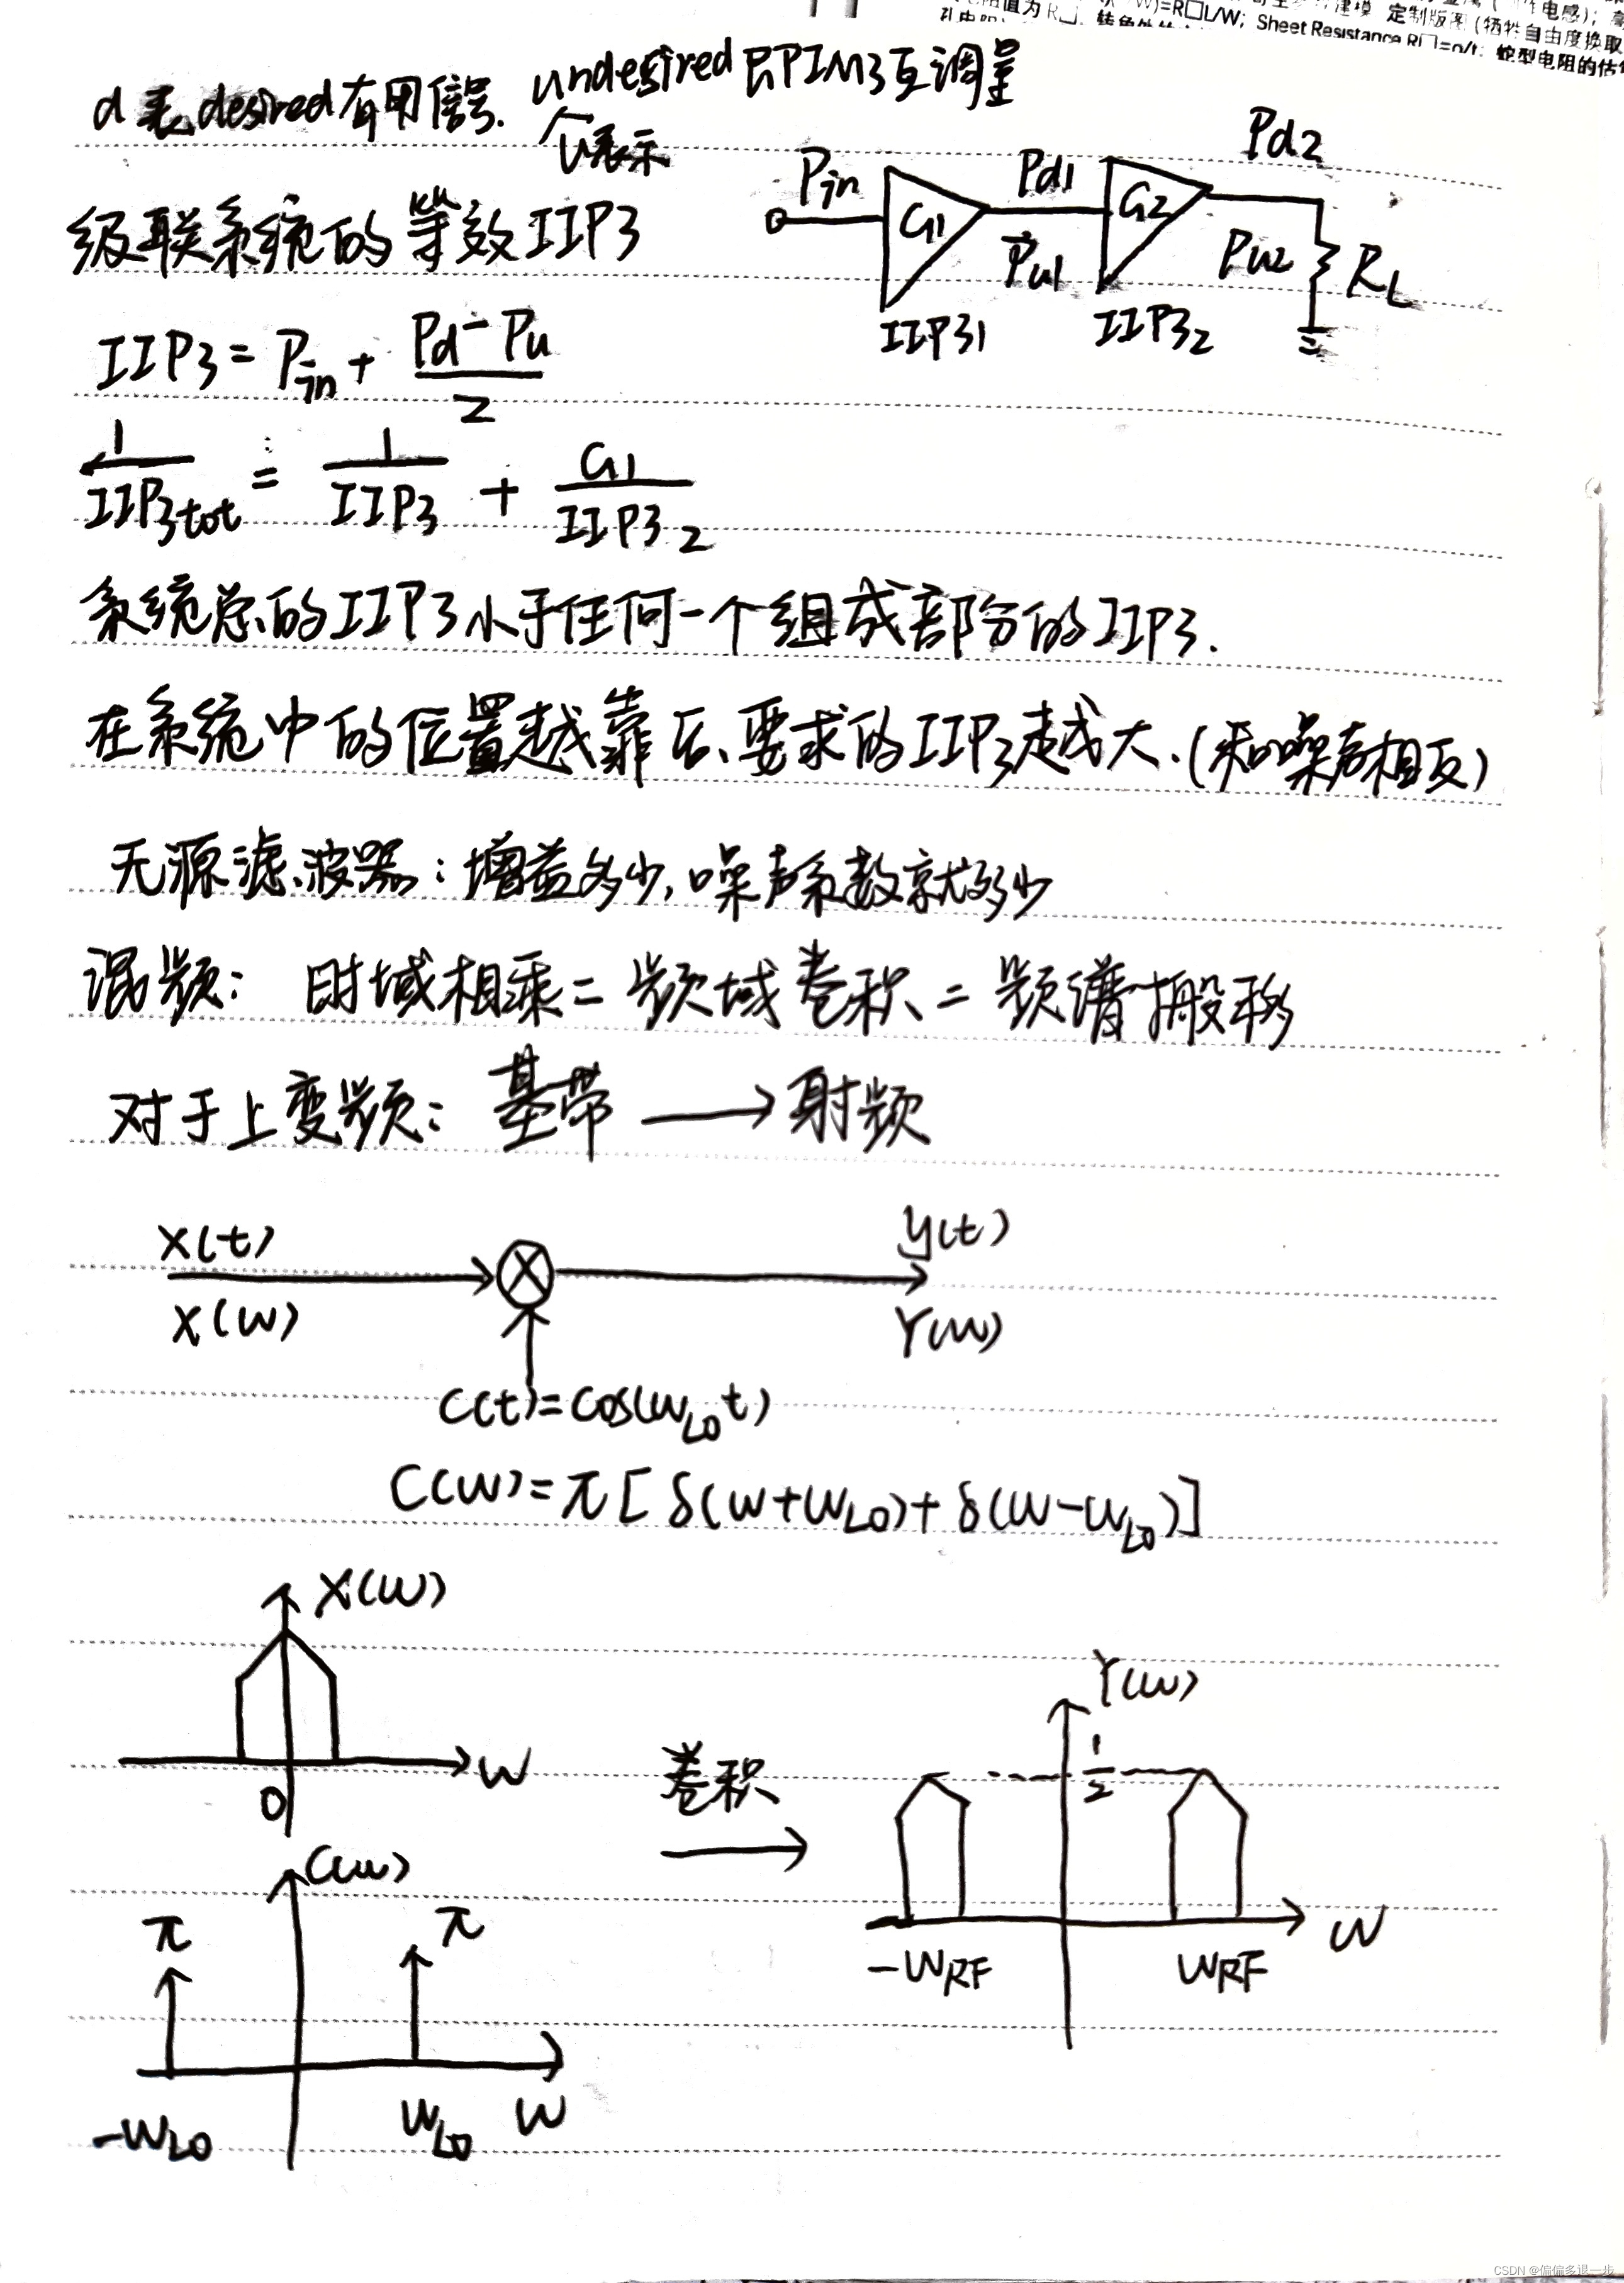 定制版图(牺牲自由度换取
值为R□
W)=R□L/W; Sheet Resistance R□=ρ/t 蛇型电阻的估
d表desired有用信号. undesired即PIM3互调量
u表示
级联系统的等效IIP3
Pin G1 Pd1 G2 Pd2
Pu1 Pu2 RL
IIP31 IIP32
IIP3 = Pin + (Pd - Pu)/2
1/IIP3tot = 1/IIP3 + G1/IIP32
系统总的IIP3小于任何一个组成部分的IIP3.
在系统中的位置越靠后、要求的IIP3越大.(和噪声相反)
无源滤波器:增益多少,噪声系数就多少
混频: 时域相乘 = 频域卷积 = 频谱搬移
对于上变频: 基带 → 射频
x(t) y(t)
X(w) Y(w)
C(t)=cos(wLOt)
C(w)=π[δ(w+wLO)+δ(w-wLO)]
X(w)
Y(w)
1/2
0 w
卷积
C(w)
π π
-wRF wRF w
-wLO wLO w
CSDN @偏偏多退一步